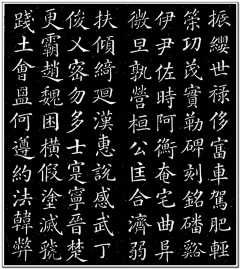 振纓世祿侈富車駕肥輕
策功茂實勒碑刻銘磻谿
伊尹佐時阿衡奄宅曲阜
微旦孰營桓公匡合濟弱
扶傾綺迴漢惠說感武丁
俊乂密勿多士寔寧晉楚
更霸趙魏困橫假塗滅虢
踐土會盟何遵約法韓弊